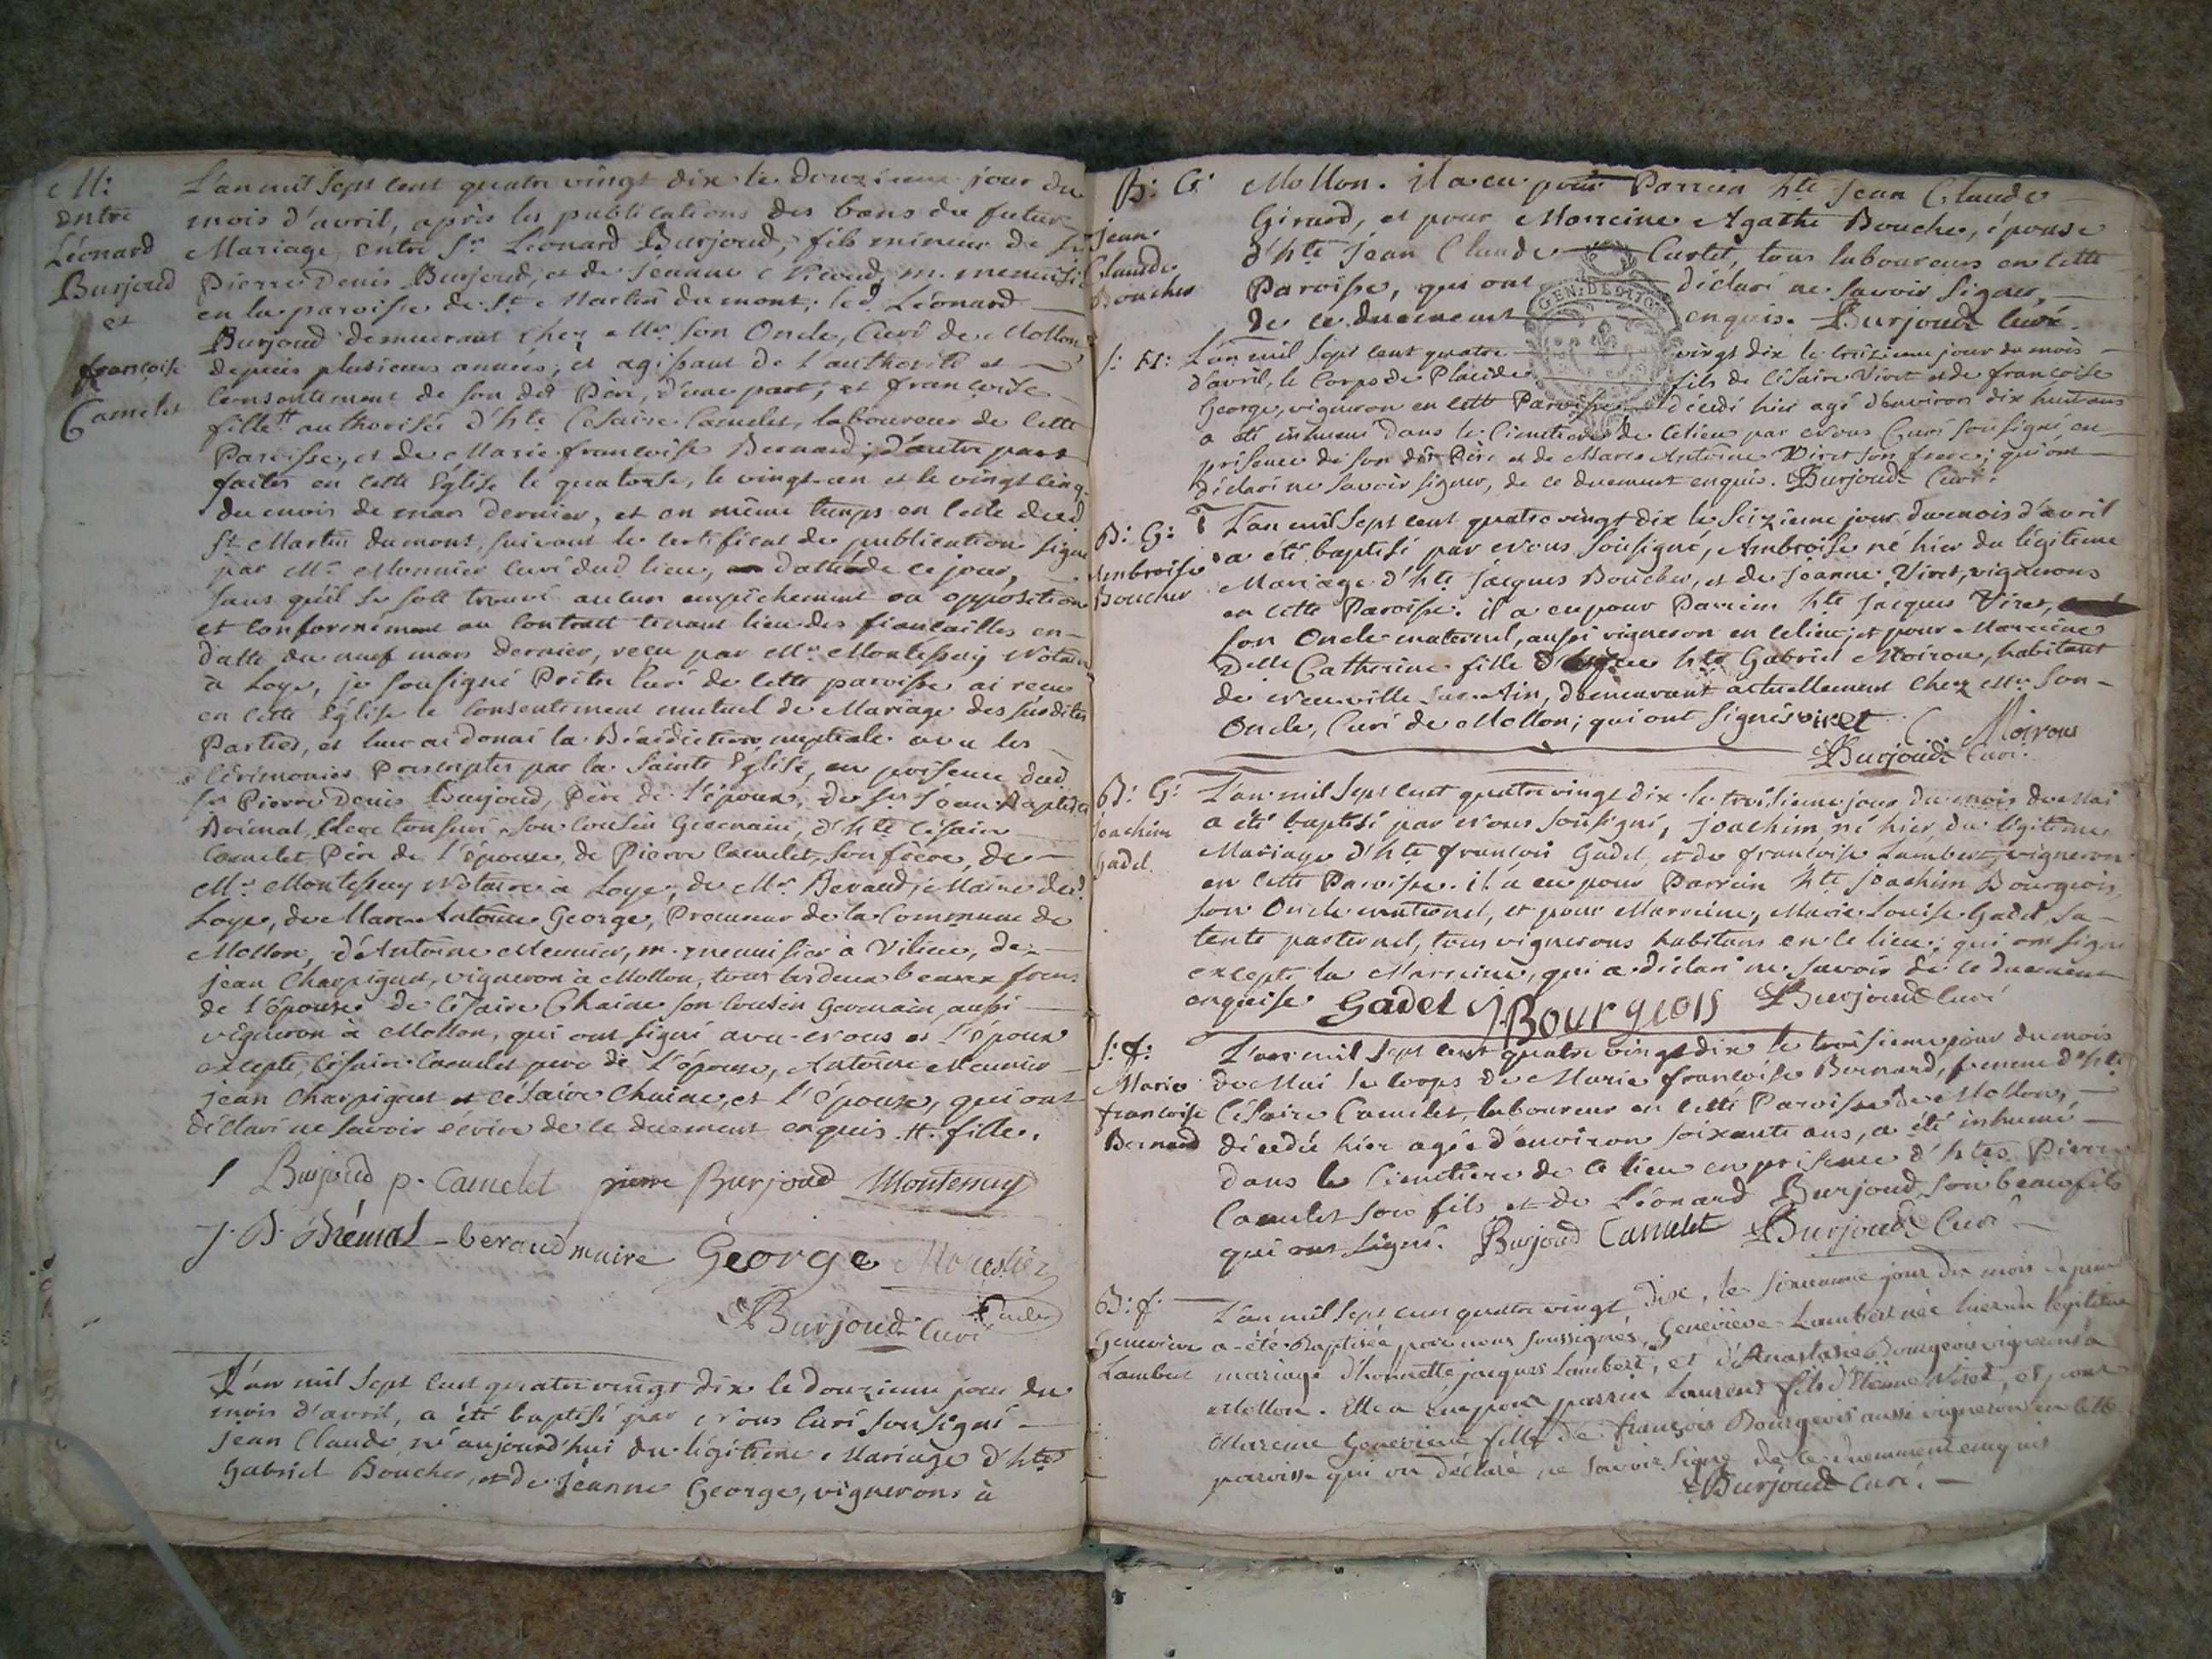 M:
entre
Léonard
Burjoud
et
françoise
Camelet
L'an mil sept cent quatre vingt dix le douzieme jour du
mois d'avril, après les publications des bans du futur
Mariage entre Sr Léonard Burjoud, fils mineur de Sr
Pierre Denis Burjoud, et de jeanne Nicoud, m. menuisier
en la paroisse de St Martin du mont; led. Léonard
Burjoud demeurant chez Mr son Oncle, Curé de Mollon
depuis plusieurs années, et agissant de l'authorité et
consentement de son dit Père, d'une part; et françoise
fille tt authorisée d'hte Césaire Camelet, laboureur de cette
Paroisse, et de Marie françoise Bernard, d'autre part
faites en cette Eglise le quatorse, le vingt-un et le vingt cinq
du mois de mars dernier, et en même temps en celle dud
St Martin dumont, suivant le certificat de publication signé
par Mr Monnier curé dud lieu, datté de ce jour,
sans qu'il se soit trouvé aucun empêchement ou opposition
et conformément au contrat tenant lieu des fiançailles en
datte du neuf mars dernier, reçu par Mr Montessuy Notaire
à Loye, je soussigné Prêtre Curé de cette paroisse ai reçu
en cette Eglise le consentement mutuel de Mariage des susdites
Parties, et leur ai donné la Bénédiction nuptiale avec les
Cérémonies Prescriptes par la Sainte Eglise, en présence dud
Sr Pierre Denis Burjoud, Père de l'époux, de Sr jean Baptiste
Brémal, Clerc tonsuré son cousin Germain, d'hte Césaire
Camelet Père de l'épouse, de Pierre Camelet, son frère, de
Mr Montessuy Notaire à Loye, de Mr Beraud, Maire dud.
Loye, de Marc Antoine George, Procureur de la Commune de
Mollon, d'Antoine Meunier, m. menuisier à Vilieu, de
jean Charpignet, vigneron à Mollon, tous les deux beaux freres
de l'épouse de Césaire Chaine son cousin Germain, aussi
vigneron à Mollon, qui ont signé avec nous et l'époux
excepté, Césaire Camelet pere de l'épouse, Antoine Meunier
jean Charpignet et césaire Chaine, et l'épouse, qui ont
déclaré ne savoir écrire de ce duement enquis. tt. fille.
L Burjoud p. Camelet pierre Burjoud Montessuy
J. B. Brémal beraud maire George
Burjoud Curé
L'an mil sept cent quatre vingt dix le douzieme jour du
mois d'avril, a été baptisé par Nous Curé soussigné
jean Claude, né aujourd'hui du légitime Mariage d'hte
Gabriel Boucher, et de jeanne George, vignerons à
B: G:
jean
Claude
Boucher
Mollon. il a eu pour Parrein hte Jean Claude
Girard, et pour Marreine Agathe Bouche, épouse
d'hte jean Claude Curtet, tous laboureurs en cette
Paroisse, qui ont déclaré ne savoir signer,
de ce duement enquis. Burjoud Curé.
S: H:
L'an mil sept cent quatre vingt dix le treizieme jour du mois
d'avril, le Corps de Placide fils de Césaire Viret et de françoise
George, vigneron en cette Paroisse décédé hier agé d'environ dix huit ans
a été inhumé dans le Cimetiere de ce lieu par Nous Curé soussigné en
présence de son dit Père et de Marc Antoine Viret son frere; qui ont
déclaré ne savoir signer, de ce duement enquis. Burjoud Curé.
B: G:
Ambroise
Boucher
L'an mil sept cent quatre vingt dix le seizieme jour du mois d'avril
a été baptisé par Nous soussigné, Ambroise né hier du légitime
Mariage d'hte jacques Boucher, et de Jeanne Viret, vignerons
en cette Paroisse. il a eu pour Parrein hte jacques Viret,
son Oncle maternel, aussi vigneron en ce lieu; et pour Marreine
Delle Catherine fille hte Gabriel Moiroux, habitant
de Neuville sur Ain, demeurant actuellement chez Mr son
Oncle, Curé de Mollon; qui ont signés viret C. Moiroux
Burjoud Curé.
B: G:
joachim
Gadel.
L'an mil sept cent quatre vingt dix le troisieme jour du mois de Mai
a été baptisé par Nous soussigné, joachim né hier du légitime
Mariage d'hte francois Gadel, et de françoise Lambert, vigneron
en cette Paroisse. il a eu pour Parrein hte joachim Bourgeois
son Oncle maternel, et pour Marreine, Marie Louise Gadel, sa
tente paternel, tous vignerons habitans en ce lieu; qui ont signé
excepté la Marreine, qui a déclaré ne savoir de ce duement
enquise Gadel J Bourgeois Burjoud Curé
S: f:
Marie
françoise
Bernard
L'an mil sept cent quatre vingt dix le troisieme jour du mois
de Mai le corps de Marie françoise Bernard, femme d'hte
Césaire Camelet, laboureur en cette Paroisse de Mollon,
décédée hier agée d'environ soixante ans, a été inhumé
dans le Cimetiere de ce lieu en présence d'htes Pierre
Camelet son fils et de Léonard Burjoud son beau fils
qui ont signé. Burjoud Camelet Burjoud Curé
B: f:
Genevieve
Lambert
L'an mil sept cent quatre vingt dix, le jour du mois
a été Baptisée par nous soussignés, Geneviève Lambert née hier du légitime
mariage d'honnette jacques Lambert, et d'Anastasie Bourgeois vignerons à
Mollon. Elle a eu pour parrin Laurend fils d'Etienne Viret, et pour
Mareine Genevieve fille de françois Bourgeois aussi vigneron en cette
paroisse qui on déclaré ne savoir signe de ce duemment enquis
Burjoud Curé.